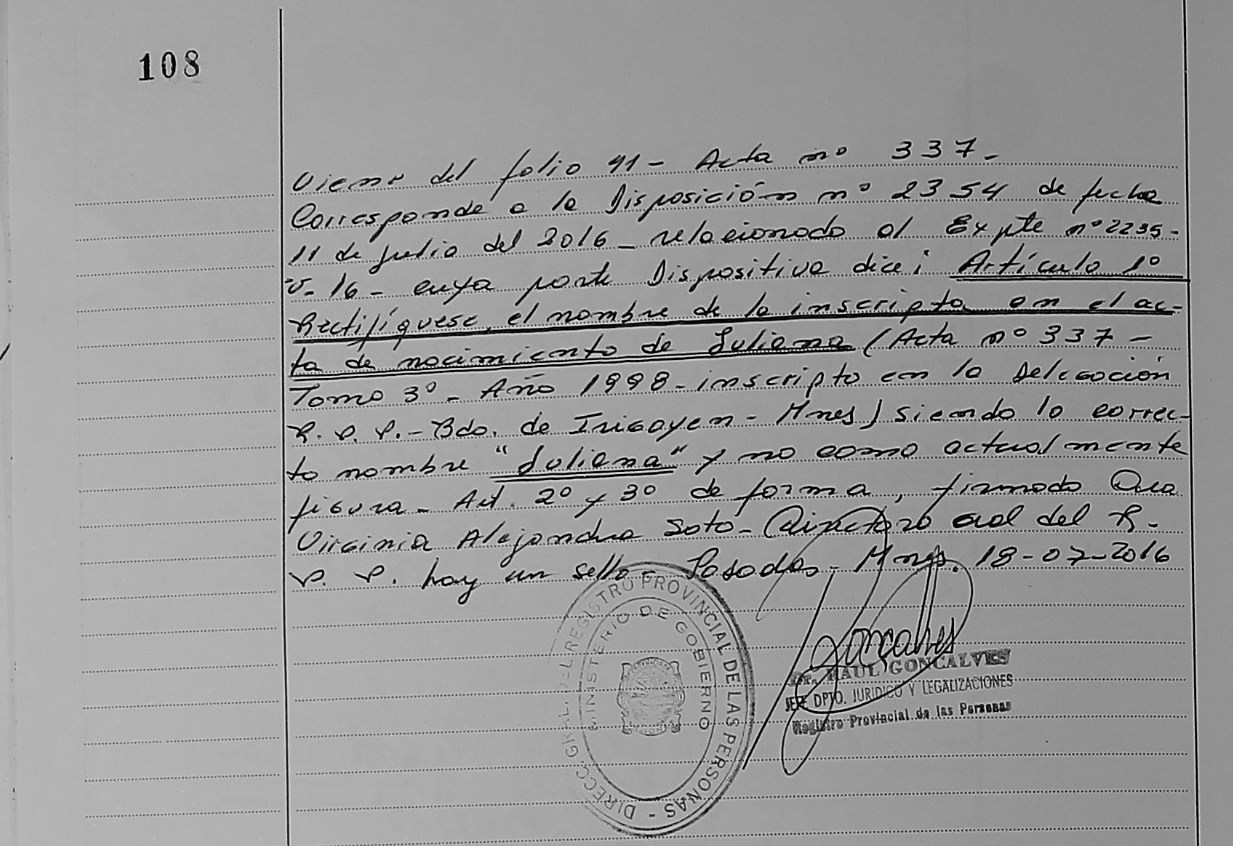 108
Viene del folio 91- Acta nº 337-
Corresponde a la Disposición nº 2354 de fecha
11 de Julio del 2016- relacionado al Expte nº 2235-
V-16- cuya parte Dispositiva dice: Artículo 1º
Rectifíquese, el nombre de la inscripta en el ac-
ta de nacimiento de Juliana (Acta nº 337-
Tomo 3º- Año 1998- inscripta en la Delegación
R.P.P.- Bdo. de Irigoyen- Mnes) siendo lo correc-
to nombre "Juliana" y no como actualmente
figura- Art. 2º y 3º de forma, firmado Dra
Virginia Alejandra Soto- Directora Gral del R-
P. P. hay un sello- Posadas- Mnes. 18-07-2016
DIRECC. GRAL. DEL REGISTRO PROVINCIAL DE LAS PERSONAS -
MINISTERIO DE GOBIERNO
Goncalves
Dr. RAUL GONCALVES
JEFE DPTO. JURIDICO Y LEGALIZACIONES
Registro Provincial de las Personas